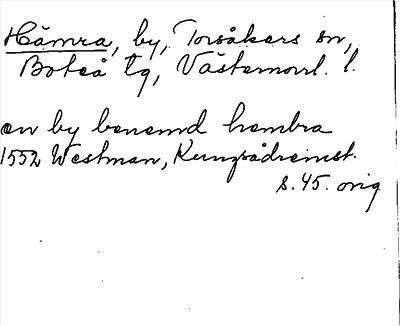 Hämra, by, Torsåkers sn,
Boteå tg, Västernorrl. l.
en by benemd hembra
1552 Westman, Kungsådreinst.
s. 45. orig